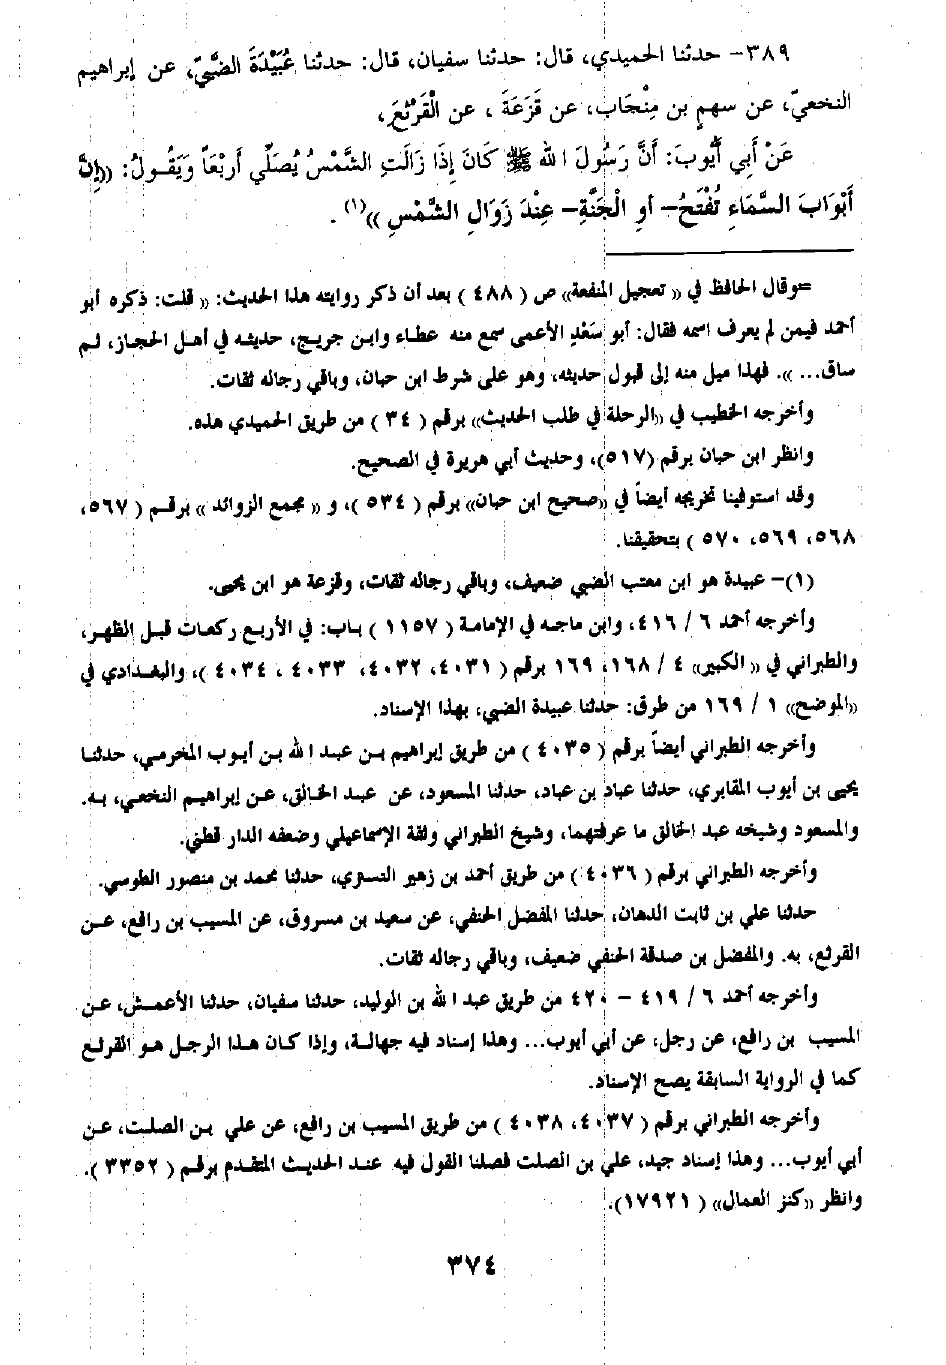 ٣٨٩- حدثنا الحميدي، قال: حدثنا سفيان، قال: حدثنا عُبَيْدَةَ الضَّبِّيّ، عن إبراهيم
النخعيّ، عن سهمِ بن مِنْجَاب، عن قَزَعَةَ ، عن الْقَرْثَعِ،
عَنْ أَبِي أَيُّوبَ: أَنَّ رَسُولَ اللهِ ﷺ كَانَ إِذَا زَالَتِ الشَّمْسُ يُصَلِّي أَرْبَعَاً وَيَقُولُ: ((إِنَّ
أَبْوَابَ السَّمَاءِ تُفْتَحُ- أوِ الْجَنَّةِ- عِنْدَ زَوَالِ الشَّمْسِ ))(١) .
=وقال الحافظ في (( تعجيل المنفعة)) ص ( ٤٨٨ ) بعد أن ذكر روايته هذا الحديث: (( قلت: ذكره أبو
أحمد فيمن لم يعرف اسمه فقال: أبو سَعْدٍ الأعمى سمع منه عطاء وابن جريج، حديثه في أهل الحجاز، لم
ساق... )). فهذا ميل منه إلى قبول حديثه، وهو على شرط ابن حبان، وباقي رجاله ثقات.
وأخرجه الخطيب في ((الرحلة في طلب الحديث)) برقم ( ٣٤ ) من طريق الحميدي هذه.
وانظر ابن حبان برقم (٥١٧)، وحديث أبي هريرة في الصحيح.
وقد استوفينا تخريجه أيضاً في ((صحيح ابن حبان)) برقم ( ٥٣٤ )، و (( مجمع الزوائد )) برقم ( ٥٦٧،
٥٦٨، ٥٦٩، ٥٧٠ ) بتحقيقنا.
(١)- عبيدة هو ابن معتب الضبي ضعيف، وباقي رجاله ثقات، وقزعة هو ابن يحيى.
وأخرجه أحمد ٦ / ٤١٦، وابن ماجه في الإمامة ( ١١٥٧ ) باب: في الأربع ركعات قبل الظهر،
والطبراني في (( الكبير)) ٤ / ١٦٨، ١٦٩ برقم ( ٤٠٣١، ٤٠٣٢، ٤٠٣٣ ، ٤٠٣٤ )، والبغدادي في
((الموضح)) ١ / ١٦٩ من طرق: حدثنا عبيدة الضبي، بهذا الإسناد.
وأخرجه الطبراني أيضاً برقم ( ٤٠٣٥ ) من طريق إبراهيم بن عبد الله بن أيوب المخرمي، حدثنا
يحيى بن أيوب المقابري، حدثنا عباد بن عباد، حدثنا المسعود، عن عبد الخالق، عن إبراهيم النخعي، به.
والمسعود وشيخه عبد الخالق ما عرفتهما، وشيخ الطبراني وثقة الإسماعيلي وضعفه الدار قطني.
وأخرجه الطبراني برقم ( ٤٠٣٦ ) من طريق أحمد بن زهير التستري، حدثنا محمد بن منصور الطوسي.
حدثنا علي بن ثابت الدهان، حدثنا المفضل الحنفي، عن سعيد بن مسروق، عن المسيب بن رافع، عن
القرثع، به. والمفضل بن صدقة الحنفي ضعيف، وباقي رجاله ثقات.
وأخرجه أحمد ٦ / ٤١٩ - ٤٢٠ من طريق عبد الله بن الوليد، حدثنا سفيان، حدثنا الأعمش، عن
المسيب بن رافع، عن رجل، عن أبي أيوب... وهذا إسناد فيه جهالة، وإذا كان هذا الرجل هو القرلع
كما في الرواية السابقة يصح الإسناد.
وأخرجه الطبراني برقم ( ٤٠٣٧، ٤٠٣٨ ) من طريق المسيب بن رافع، عن علي بن الصلت، عن
أبي أيوب... وهذا إسناد جيد، علي بن الصلت فصلنا القول فيه عند الحديث المتقدم برقم ( ٣٣٥٢ ).
وانظر ((كنز العمال)) ( ١٧٩٢١).
٣٧٤